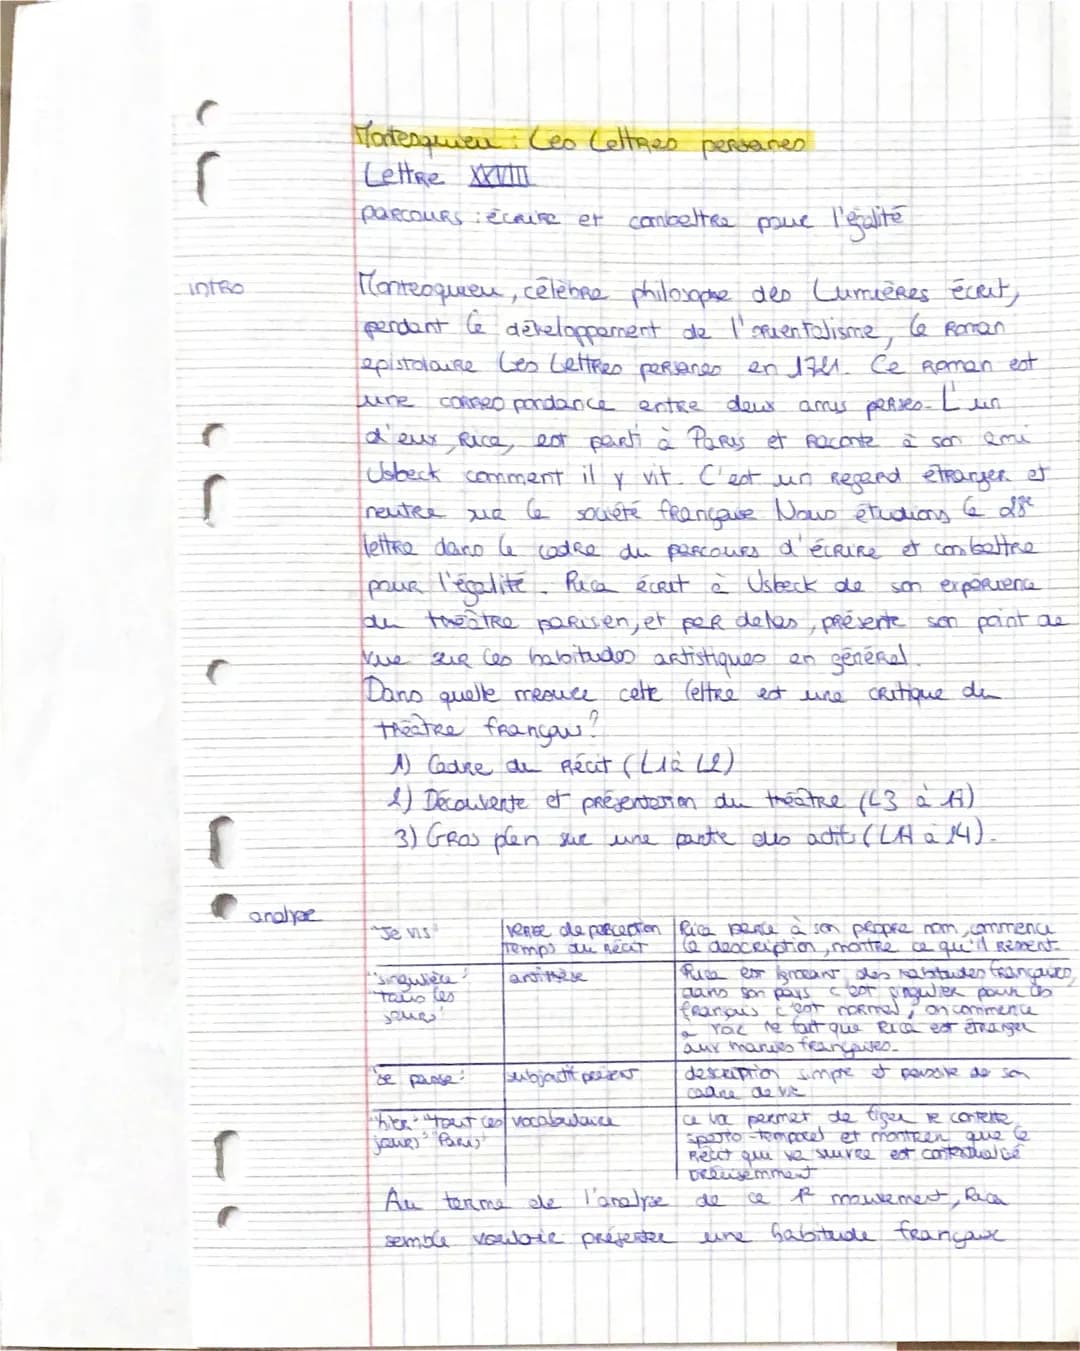 Montesquieu : Les Lettres persanes
Lettre XXVIII
parcours : écrire et combattre pour l'égalité
intro
Montesquieu, célèbre philosophe des Lumières écrit,
pendant le développement de l'orientalisme, le roman
epistolaire Les Lettres persanes en 1721. Ce roman est
une correspondance entre deux amis perses. L'un
d'eux, Rica, est parti à Paris et raconte à son ami
Usbeck comment il y vit. C'est un regard étranger et
neutre sur la société française Nous étudions la 28e
lettre dans le cadre du parcours d'écrire et combattre
pour l'égalité. Rica écrit à Usbeck de son expérience
du théâtre parisien, et par delas, présente son point de
vue sur les habitudes artistiques en général.
Dans quelle mesure cette lettre est une critique du
théâtre français?
1) Cadre du récit (L1 à L2)
2) Découverte et présentation du théâtre (L3 à 11)
3) Gros plan sur une partie des (L11 à 14).
analyse
"Je vis" verbe de perception temps du récit Rica parle à son propre nom, commence
la description, montre ce qu'il ressent
"singulière" "tous les jours" antithèse Rica est ignorant des habitudes françaises,
dans son pays c'est singulier pour les
français c'est normal, on commence
à voir le fait que Rica est étranger
aux françaises.
"se passe" subjonctif présent description simple et de son
cadre de vie
"hier" "tout les jours" "Paris" vocabulaire ce va permet de figer le contexte
spatio-temporel et montrer que le
récit qui va suivre est contextualisé
précisemment
Au terme de l'analyse de ce 1er mouvement, Rica
semble vouloir présenter une habitude française